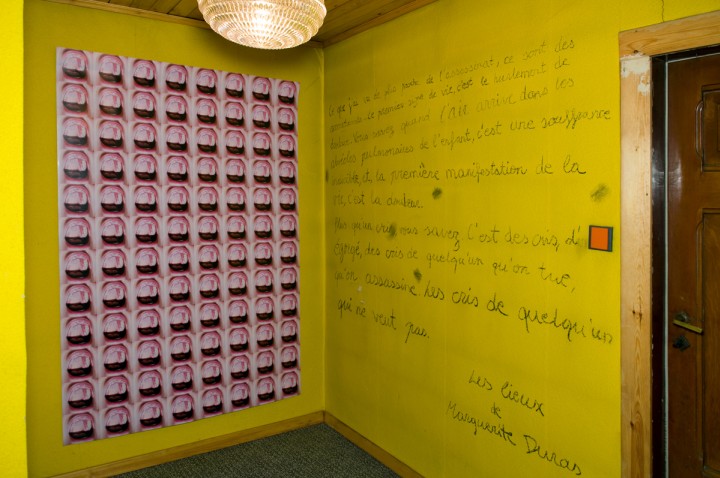 Ce que j'ai vu de plus proche de l'assassinat, ce sont des
accouchements. Le premier signe de vie, c'est le hurlement de
douleur. Vous savez, quand l'air arrive dans les
alvéoles pulmonaires de l'enfant, c'est une souffrance
indicible, et, la première manifestation de la
vie, c'est la douleur.
Plus qu'un cri, vous savez, c'est des cris, d'
égorgé, des cris de quelqu'un qu'on tue,
qu'on assassine. Les cris de quelqu'un
qui ne veut pas.
Les lieux
de
Marguerite Duras